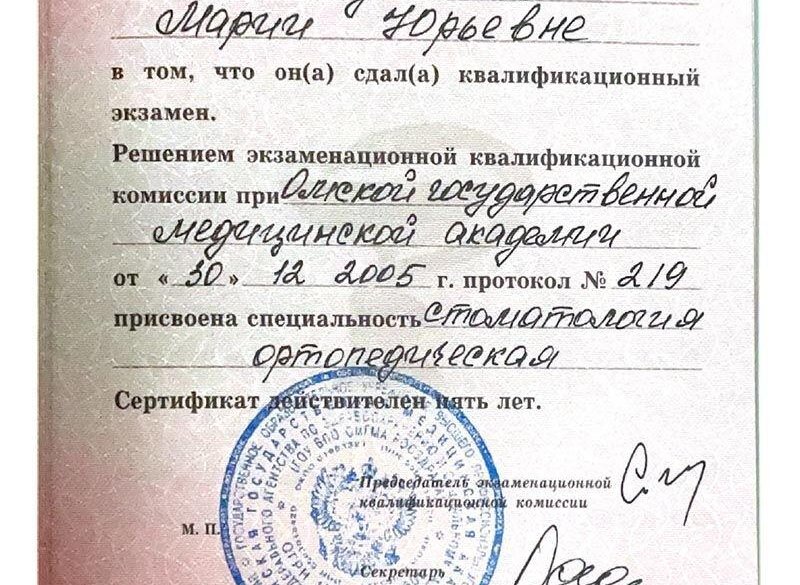 Марии Юрьевне
в том, что он(а) сдал(а) квалификационный
экзамен.
Решением экзаменационной квалификационной
комиссии при Омской государственной
медицинской академии
от « 30 » 12 2005 г. протокол № 219
присвоена специальность стоматология
ортопедическая
Сертификат действителен пять лет.
Председатель экзаменационной
квалификационной комиссии
М. П.
Секретарь